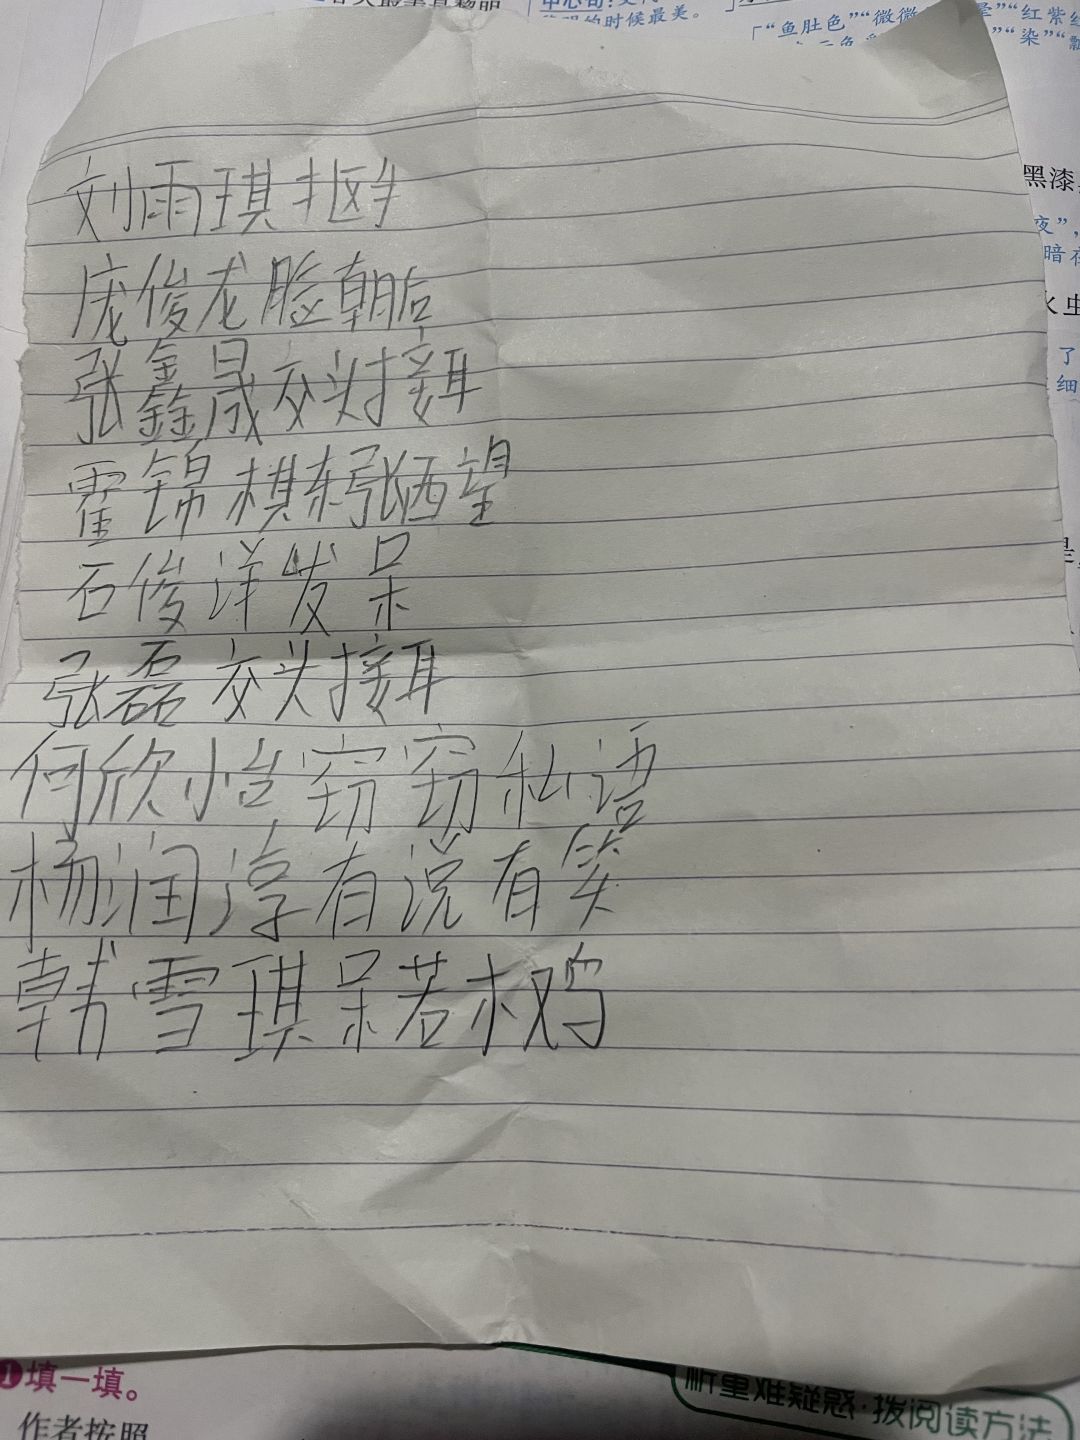 的时候最美。
「“鱼肚色”“微微
”“红紫
”“染”“飘
黑漆
夜”，
暗夜
水虫
了
细
刘雨琪抠手
庞俊龙脸朝后
张鑫晟交头接耳
霍锦棋东张西望
石俊洋发呆
张磊交头接耳
何欣怡窃窃私语
杨润淳有说有笑
韩雪琪呆若木鸡
1填一填。
作者按照
析重难疑惑·拨阅读方法